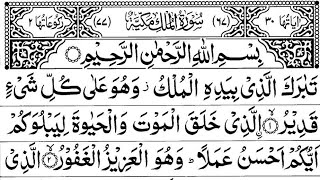 اٰیَاتُهَا ٣٠ (٦٧) سُوْرَةُ الْمُلْكِ مَكِّیَّةٌ (٧٧) رُكُوْعَاتُهَا ٢
بِسْمِ اللّٰهِ الرَّحْمٰنِ الرَّحِیْمِ
تَبٰرَكَ الَّذِیْ بِیَدِهِ الْمُلْكُ ؗ وَهُوَ عَلٰى كُلِّ شَیْءٍ
قَدِیْرُ ۙ﴿١﴾ اِ۟لَّذِیْ خَلَقَ الْمَوْتَ وَالْحَیٰوةَ لِیَبْلُوَكُمْ
اَیُّكُمْ اَحْسَنُ عَمَلًا ؕ وَهُوَ الْعَزِیْزُ الْغَفُوْرُ ۙ﴿٢﴾ الَّذِیْ